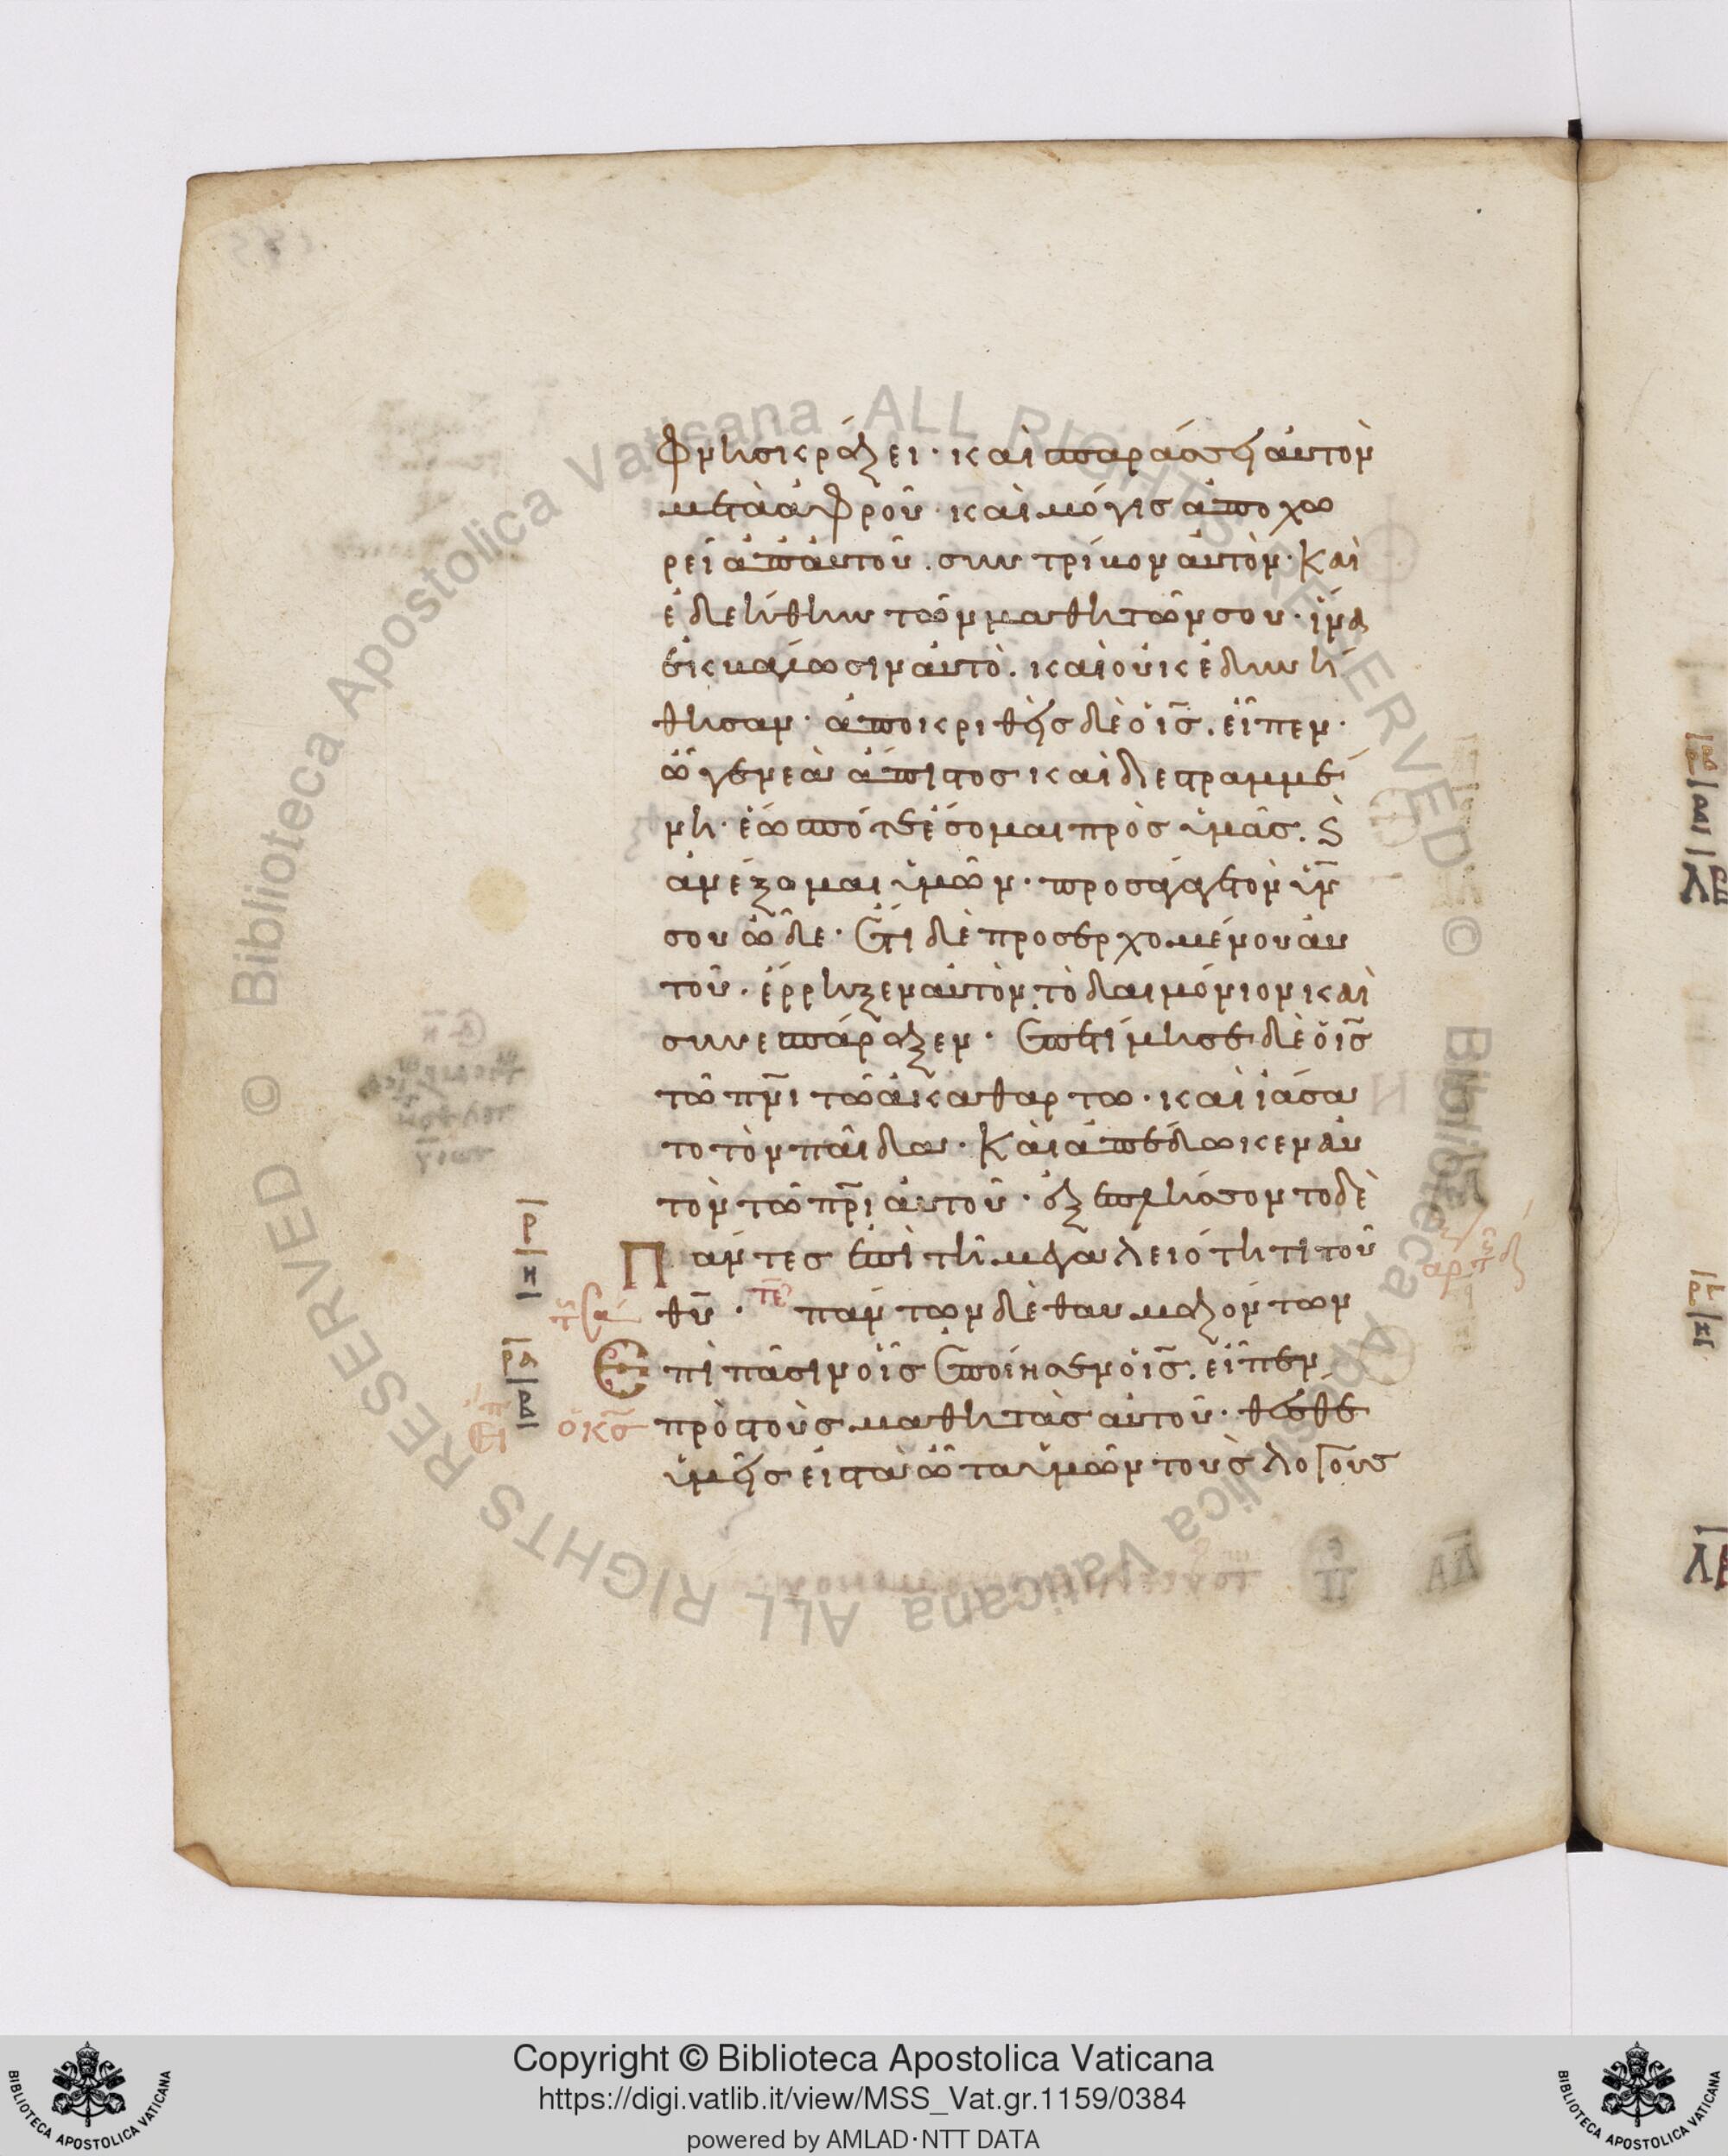 φνης κράζει· και σπαράσσει αυτὸν
μετὰ ἀφροῦ· καὶ μόγις ἀποχω
ρεῖ ἀπ' αυτοῦ. συντρίβον αυτὸν· Καὶ
ἐδεήθην τῶν μαθητῶν σου· ἵνα
ἐκβάλωσιν αυτὸ. και οὐκ ἐδυνή
θησαν· ἀποκριθεὶς δὲ ὁ ις̅. εἶπεν·
ὦ γενεὰ ἄπιστος και διεστραμμέ
νη· ἕως πότε ἔσομαι πρὸς ὑμᾶς. ϗ
ἀνέξομαι ὑμῶν· προσάγαγε τὸν υν̅
σου ὧδε· ἔτι δὲ προσερχομένου αυ
τοῦ. ἔρρηξεν αὐτὸν τὸ δαιμόνιον καὶ
συνεσπάραξεν· ἐπετίμησε δὲ ὁ ις̅
τῶ πνι̅ τῶ ἀκαθάρτω· καὶ ἰάσα
το τὸν παῖδα· Καὶ ἀπέδωκεν αυ
τὸν τῶ πρι̅ αὐτοῦ· ἐξεπλήσσοντο δὲ
Πάντες ἐπὶ τῆ μεγαλειότητι τοῦ
θυ̅· τε̅ πάντων δὲ θαυμαζόντων
Επὶ πᾶσιν οἷς ἐποίησεν ὁ ις̅. εἶπεν
πρὸς τοὺς μαθητὰς αυτοῦ· θέσθε
ὑμεῖς εἰς τὰ ὦτα ὑμῶν τοὺς λόγους
ρ̅
η
ρα̅
β
ὁ κς̅
Copyright © Biblioteca Apostolica Vaticana
https://digi.vatlib.it/view/MSS_Vat.gr.1159/0384
powered by AMLAD·NTT DATA
BIBLIOTECA APOSTOLICA VATICANA
BIBLIOTECA APOSTOLICA VATICANA
© Biblioteca Apostolica Vaticana ALL RIGHTS RESERVED © Biblioteca Apostolica Vaticana ALL RIGHTS RESERVED